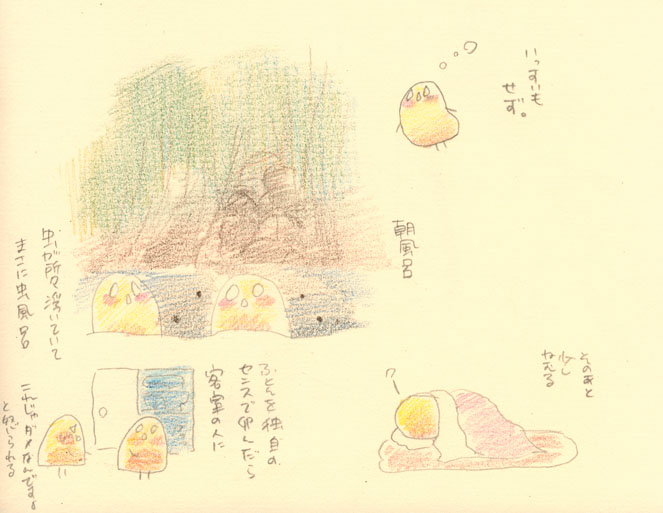 いっすいも
せず。
朝風呂
虫が所々浮いていて
まさに虫風呂
そのあと
少し
ねむる
ふとんを独自の
センスで畳んだら
客室の人に
これじゃダメなんですよ。
と怒られる